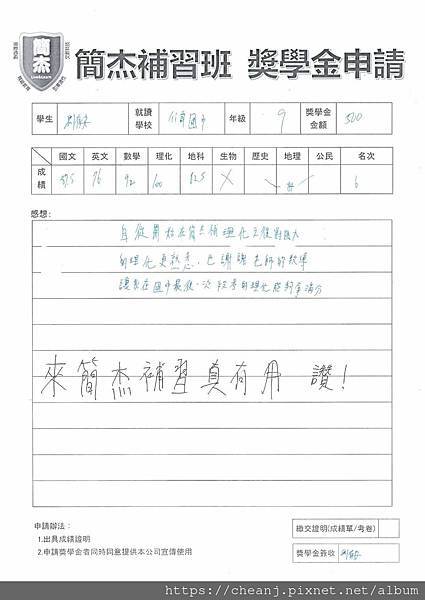 簡杰
簡杰補習班 獎學金申請
學生 就讀學校 國中 年級 9 獎學金金額 500
國文 英文 數學 理化 地科 生物 歷史 地理 公民 名次
成績 76 92 100 82.5 X 6
感想:
自從開始在簡杰補理化之後
對理化更熟悉,也謝謝老師的教導
讓我在國中最後一次段考的理化能夠拿滿分
來簡杰補習真有用 讚!
申請辦法:
1.出具成績證明
2.申請獎學金者同時同意提供本公司宣傳使用
繳交證明(成績單/考卷)
獎學金簽收
https://cheanj.pixnet.net/album